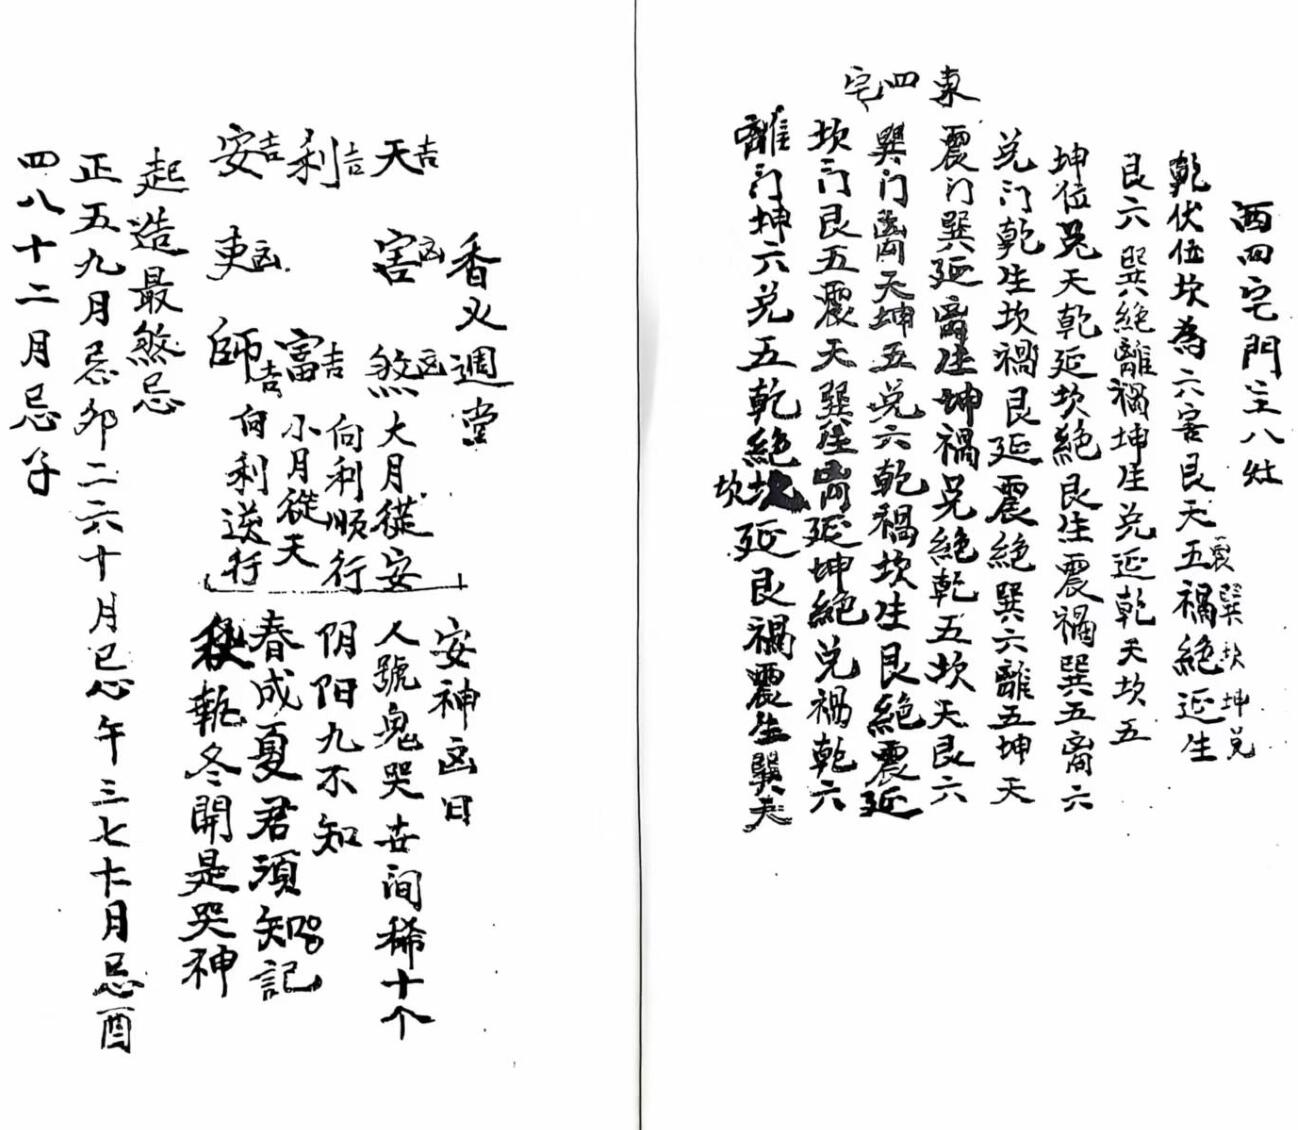 西四宅門主八灶
乾伏位坎為六害艮天五禍絶延生
震巽坎坤兑
艮六巽絶離禍坤生兑延乾天坎五
坤位兑天乾延坎絶艮生震禍巽五离六
兑门乾生坎禍艮延震絶巽六離五坤天
東四宅
震门巽延离生坤禍兑絶乾五坎天艮六
巽门离天坤五兑六乾禍坎生艮絶震延
坎门艮五震天巽生离延坤絶兑禍乾六
離门坤六兑五乾絶坎延艮禍震生巽天
坎
香火週堂
天吉 害凶 煞凶
利吉 富吉
安吉 夫凶 師吉
大月從安
向利顺行
小月從天
向利送行
安神凶日
人號鬼哭世间稀十个
阴阳九不知
春成夏君須知記
秋執冬開是哭神
起造最煞忌
正五九月忌卯二六十月忌午三七十一月忌酉
四八十二月忌子